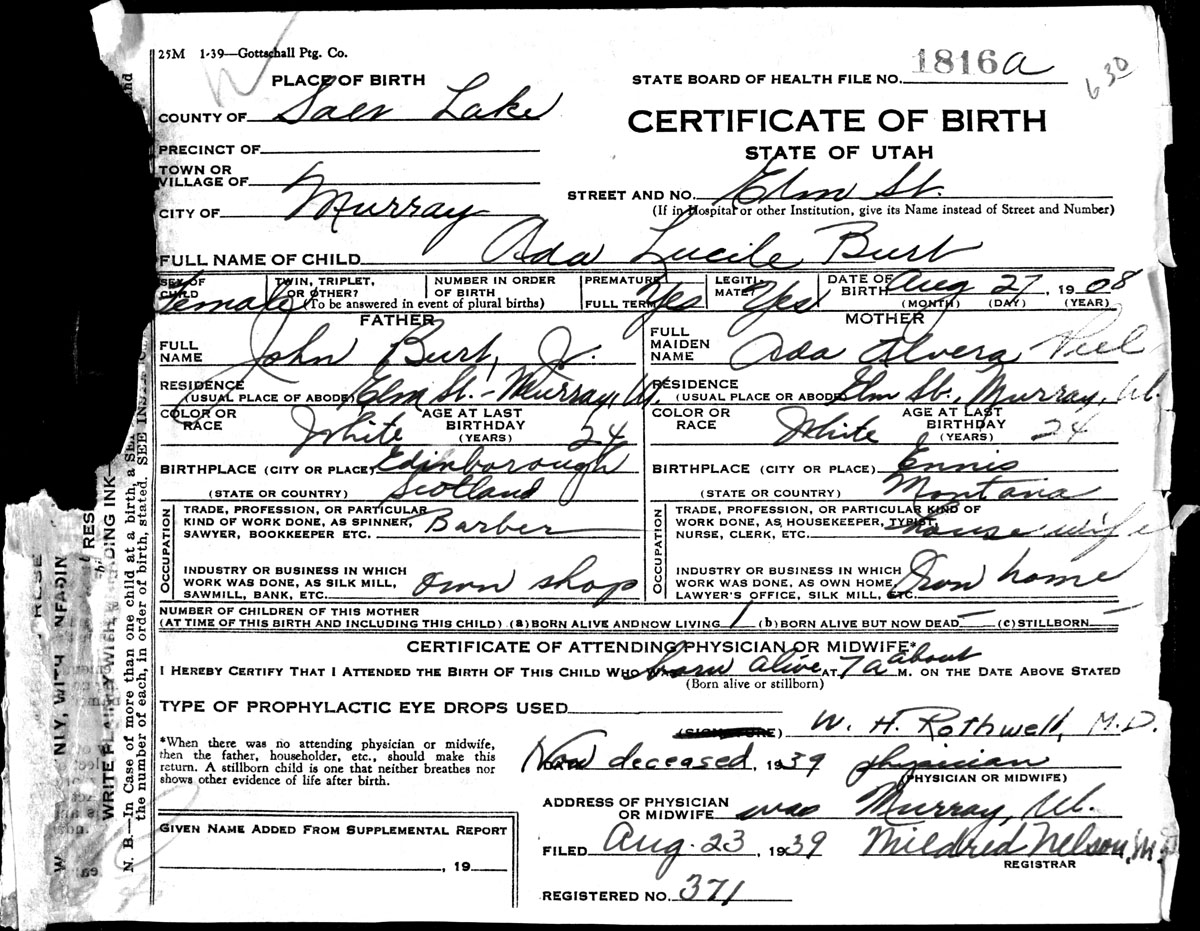 25M 1-39—Gottschall Ptg. Co.
1816a
630
PLACE OF BIRTH
STATE BOARD OF HEALTH FILE NO.
COUNTY OF Salt Lake
CERTIFICATE OF BIRTH
PRECINCT OF
STATE OF UTAH
TOWN OR VILLAGE OF
STREET AND NO. Elm St.
CITY OF Murray
(If in Hospital or other Institution, give its Name instead of Street and Number)
FULL NAME OF CHILD Ada Lucile Burt
SEX OF CHILD Female
TWIN, TRIPLET, OR OTHER?
NUMBER IN ORDER OF BIRTH
(To be answered in event of plural births)
PREMATURE
FULL TERM Yes
LEGITIMATE? Yes
DATE OF BIRTH Aug 27, 1908
(MONTH) (DAY) (YEAR)
FATHER
FULL NAME John Burt, Jr.
RESIDENCE (USUAL PLACE OF ABODE) Elm St. - Murray, Ut.
COLOR OR RACE White
AGE AT LAST BIRTHDAY (YEARS) 24
BIRTHPLACE (CITY OR PLACE) Edinborough
(STATE OR COUNTRY) Scotland
OCCUPATION
TRADE, PROFESSION, OR PARTICULAR KIND OF WORK DONE, AS SPINNER, SAWYER, BOOKKEEPER ETC. Barber
INDUSTRY OR BUSINESS IN WHICH WORK WAS DONE, AS SILK MILL, SAWMILL, BANK, ETC. own shop
MOTHER
FULL MAIDEN NAME Ada Alvera Peel
RESIDENCE (USUAL PLACE OR ABODE) Elm St., Murray, Ut.
COLOR OR RACE White
AGE AT LAST BIRTHDAY (YEARS) 24
BIRTHPLACE (CITY OR PLACE) Ennis
(STATE OR COUNTRY) Montana
OCCUPATION
TRADE, PROFESSION, OR PARTICULAR KIND OF WORK DONE, AS HOUSEKEEPER, TYPIST, NURSE, CLERK, ETC. housewife
INDUSTRY OR BUSINESS IN WHICH WORK WAS DONE, AS OWN HOME, LAWYER'S OFFICE, SILK MILL, ETC. Own home
NUMBER OF CHILDREN OF THIS MOTHER
(AT TIME OF THIS BIRTH AND INCLUDING THIS CHILD) (a) BORN ALIVE AND NOW LIVING 1 (b) BORN ALIVE BUT NOW DEAD – (c) STILLBORN –
CERTIFICATE OF ATTENDING PHYSICIAN OR MIDWIFE*
I HEREBY CERTIFY THAT I ATTENDED THE BIRTH OF THIS CHILD WHO WAS born alive AT 7 a about M. ON THE DATE ABOVE STATED
(Born alive or stillborn)
TYPE OF PROPHYLACTIC EYE DROPS USED
*When there was no attending physician or midwife, then the father, householder, etc., should make this return. A stillborn child is one that neither breathes nor shows other evidence of life after birth.
(SIGNATURE) W. H. Rothwell, M.D.
Now deceased, 1939 physician
(PHYSICIAN OR MIDWIFE)
ADDRESS OF PHYSICIAN OR MIDWIFE was Murray, Ut.
GIVEN NAME ADDED FROM SUPPLEMENTAL REPORT
, 19
FILED Aug. 23, 1939 Mildred Nelson, M.D.
REGISTRAR
REGISTERED NO. 371
N. B.—In Case of more than one child at a birth, a
the number of each, in order of birth, stated. SEE
WRITE PLAINLY WITH